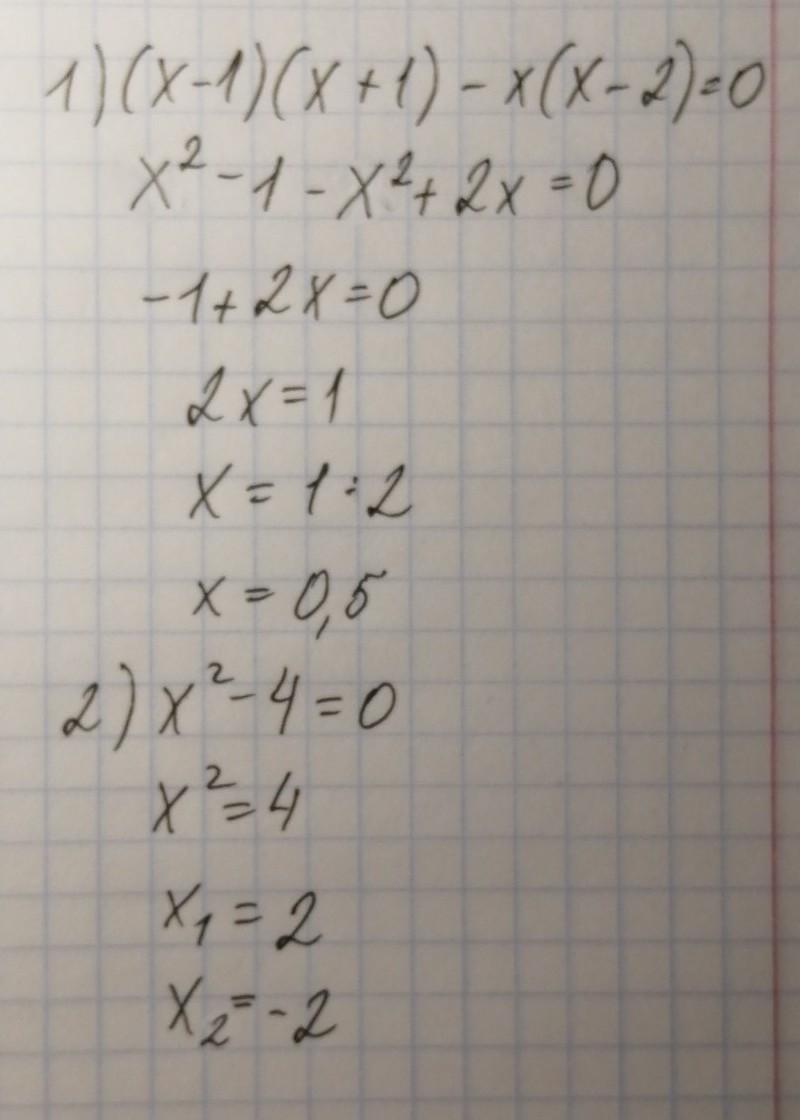 1) (x-1)(x+1) - x(x-2)=0
x²-1-x²+2x=0
-1+2x=0
2x=1
x=1:2
x=0,5
2) x²-4=0
x²=4
x₁=2
x₂=-2